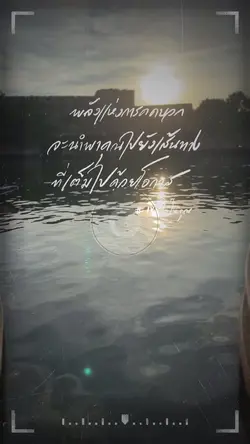 พลังแห่งการคิดบวก
จะนำพาคุณไปยังเส้นทาง
ที่เต็มไปด้วยโอกาส